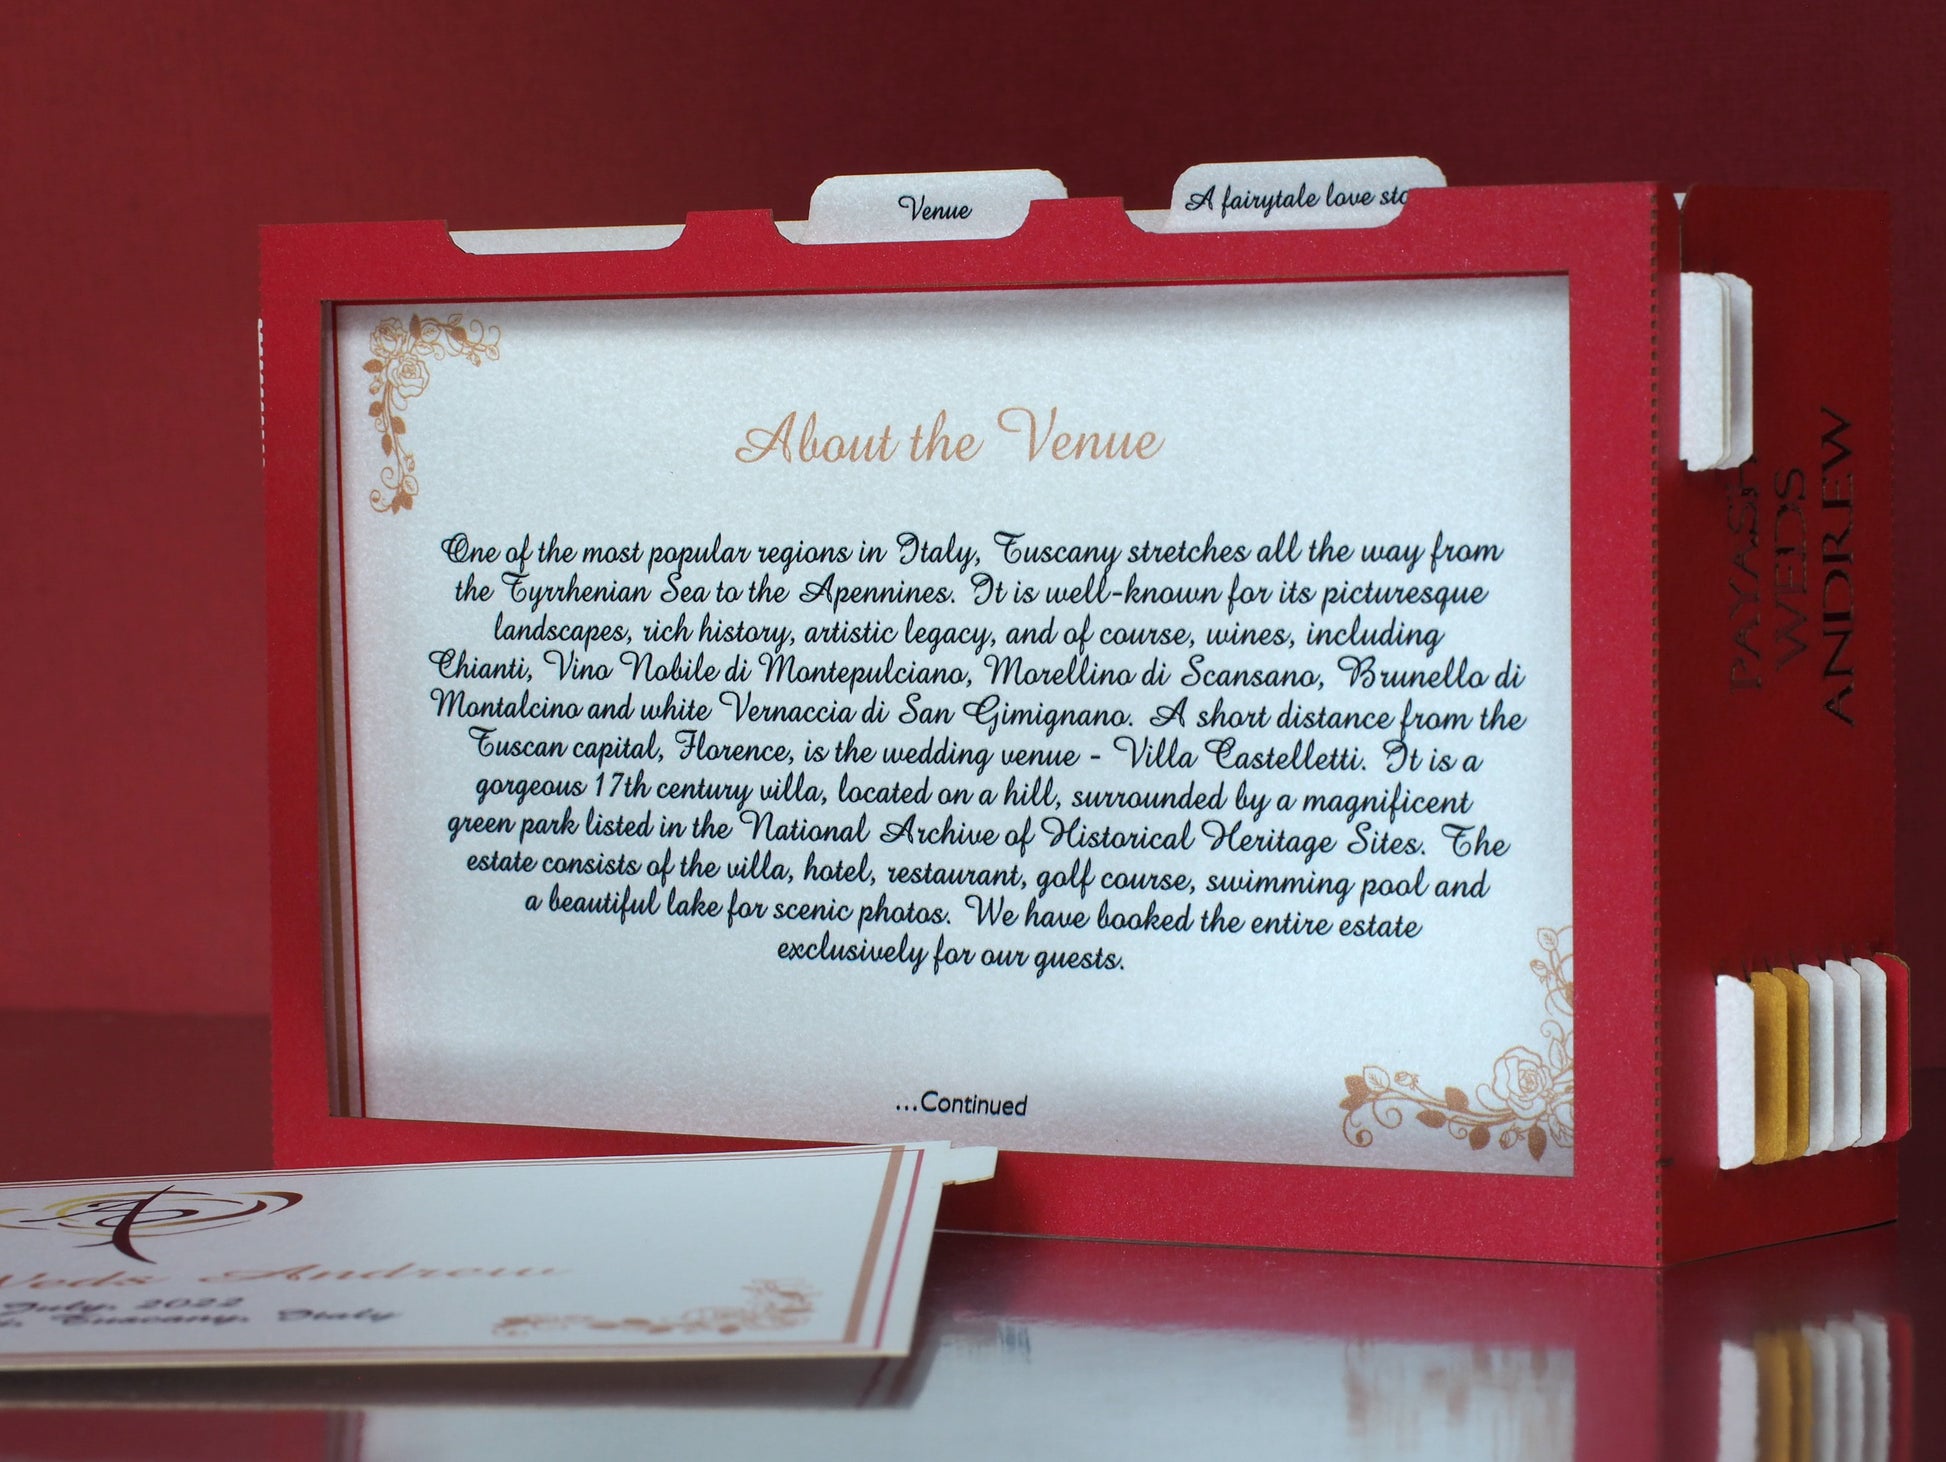 Venue
A fairytale love sto
About the Venue
One of the most popular regions in Italy, Tuscany stretches all the way from
the Tyrrhenian Sea to the Apennines. It is well-known for its picturesque
landscapes, rich history, artistic legacy, and of course, wines, including
Chianti, Vino Nobile di Montepulciano, Morellino di Scansano, Brunello di
Montalcino and white Vernaccia di San Gimignano. A short distance from the
Tuscan capital, Florence, is the wedding venue - Villa Castelletti. It is a
gorgeous 17th century villa, located on a hill, surrounded by a magnificent
green park listed in the National Archive of Historical Heritage Sites. The
estate consists of the villa, hotel, restaurant, golf course, swimming pool and
a beautiful lake for scenic photos. We have booked the entire estate
exclusively for our guests.
...Continued
WEDS
ANDREW
Weds Andrew
July, 2022
Tuscany, Italy